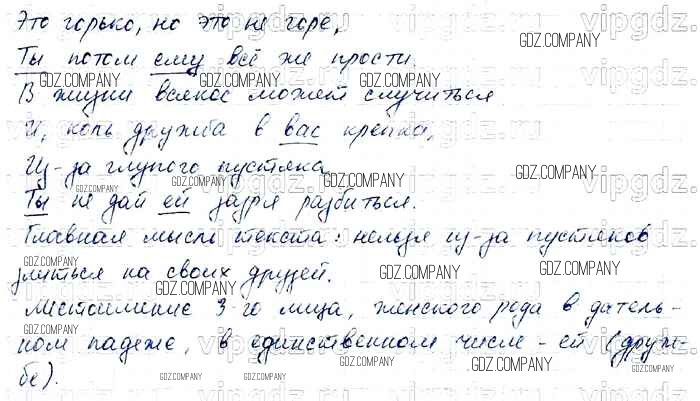 Это горько, но это не горе,
Ты потом ему всё же прости.
В жизни всякое может случиться
И, коль дружба в вас крепка,
Из-за глупого пустяка
Ты не дай ей зазря разбиться.
Главная мысль текста: нельзя из-за пустяков
злиться на своих друзей.
Местоимение 3-го лица, женского рода в датель-
ном падеже, в единственном числе - ей (друж-
бе).